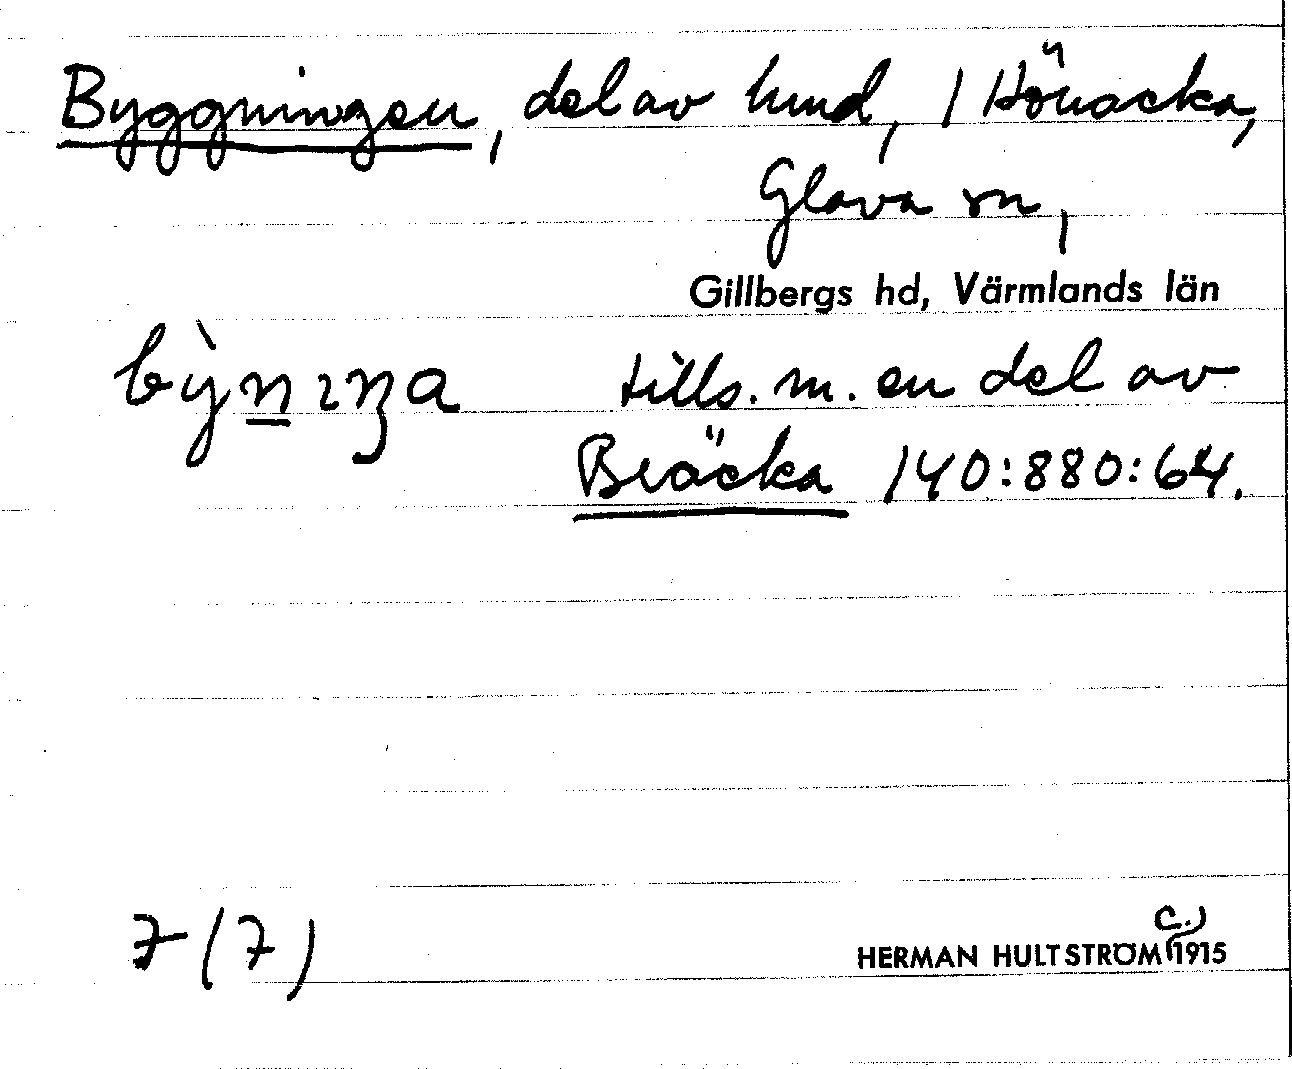 Byggningen, del av hmd, 1 Hönacka,
Glava sn,
Gillbergs hd, Värmlands län
bỳn̲ıŋa tills. m. en del av
Bräcka 140:880:64.
7 (7)
HERMAN HULTSTRÖM (c.) 1915